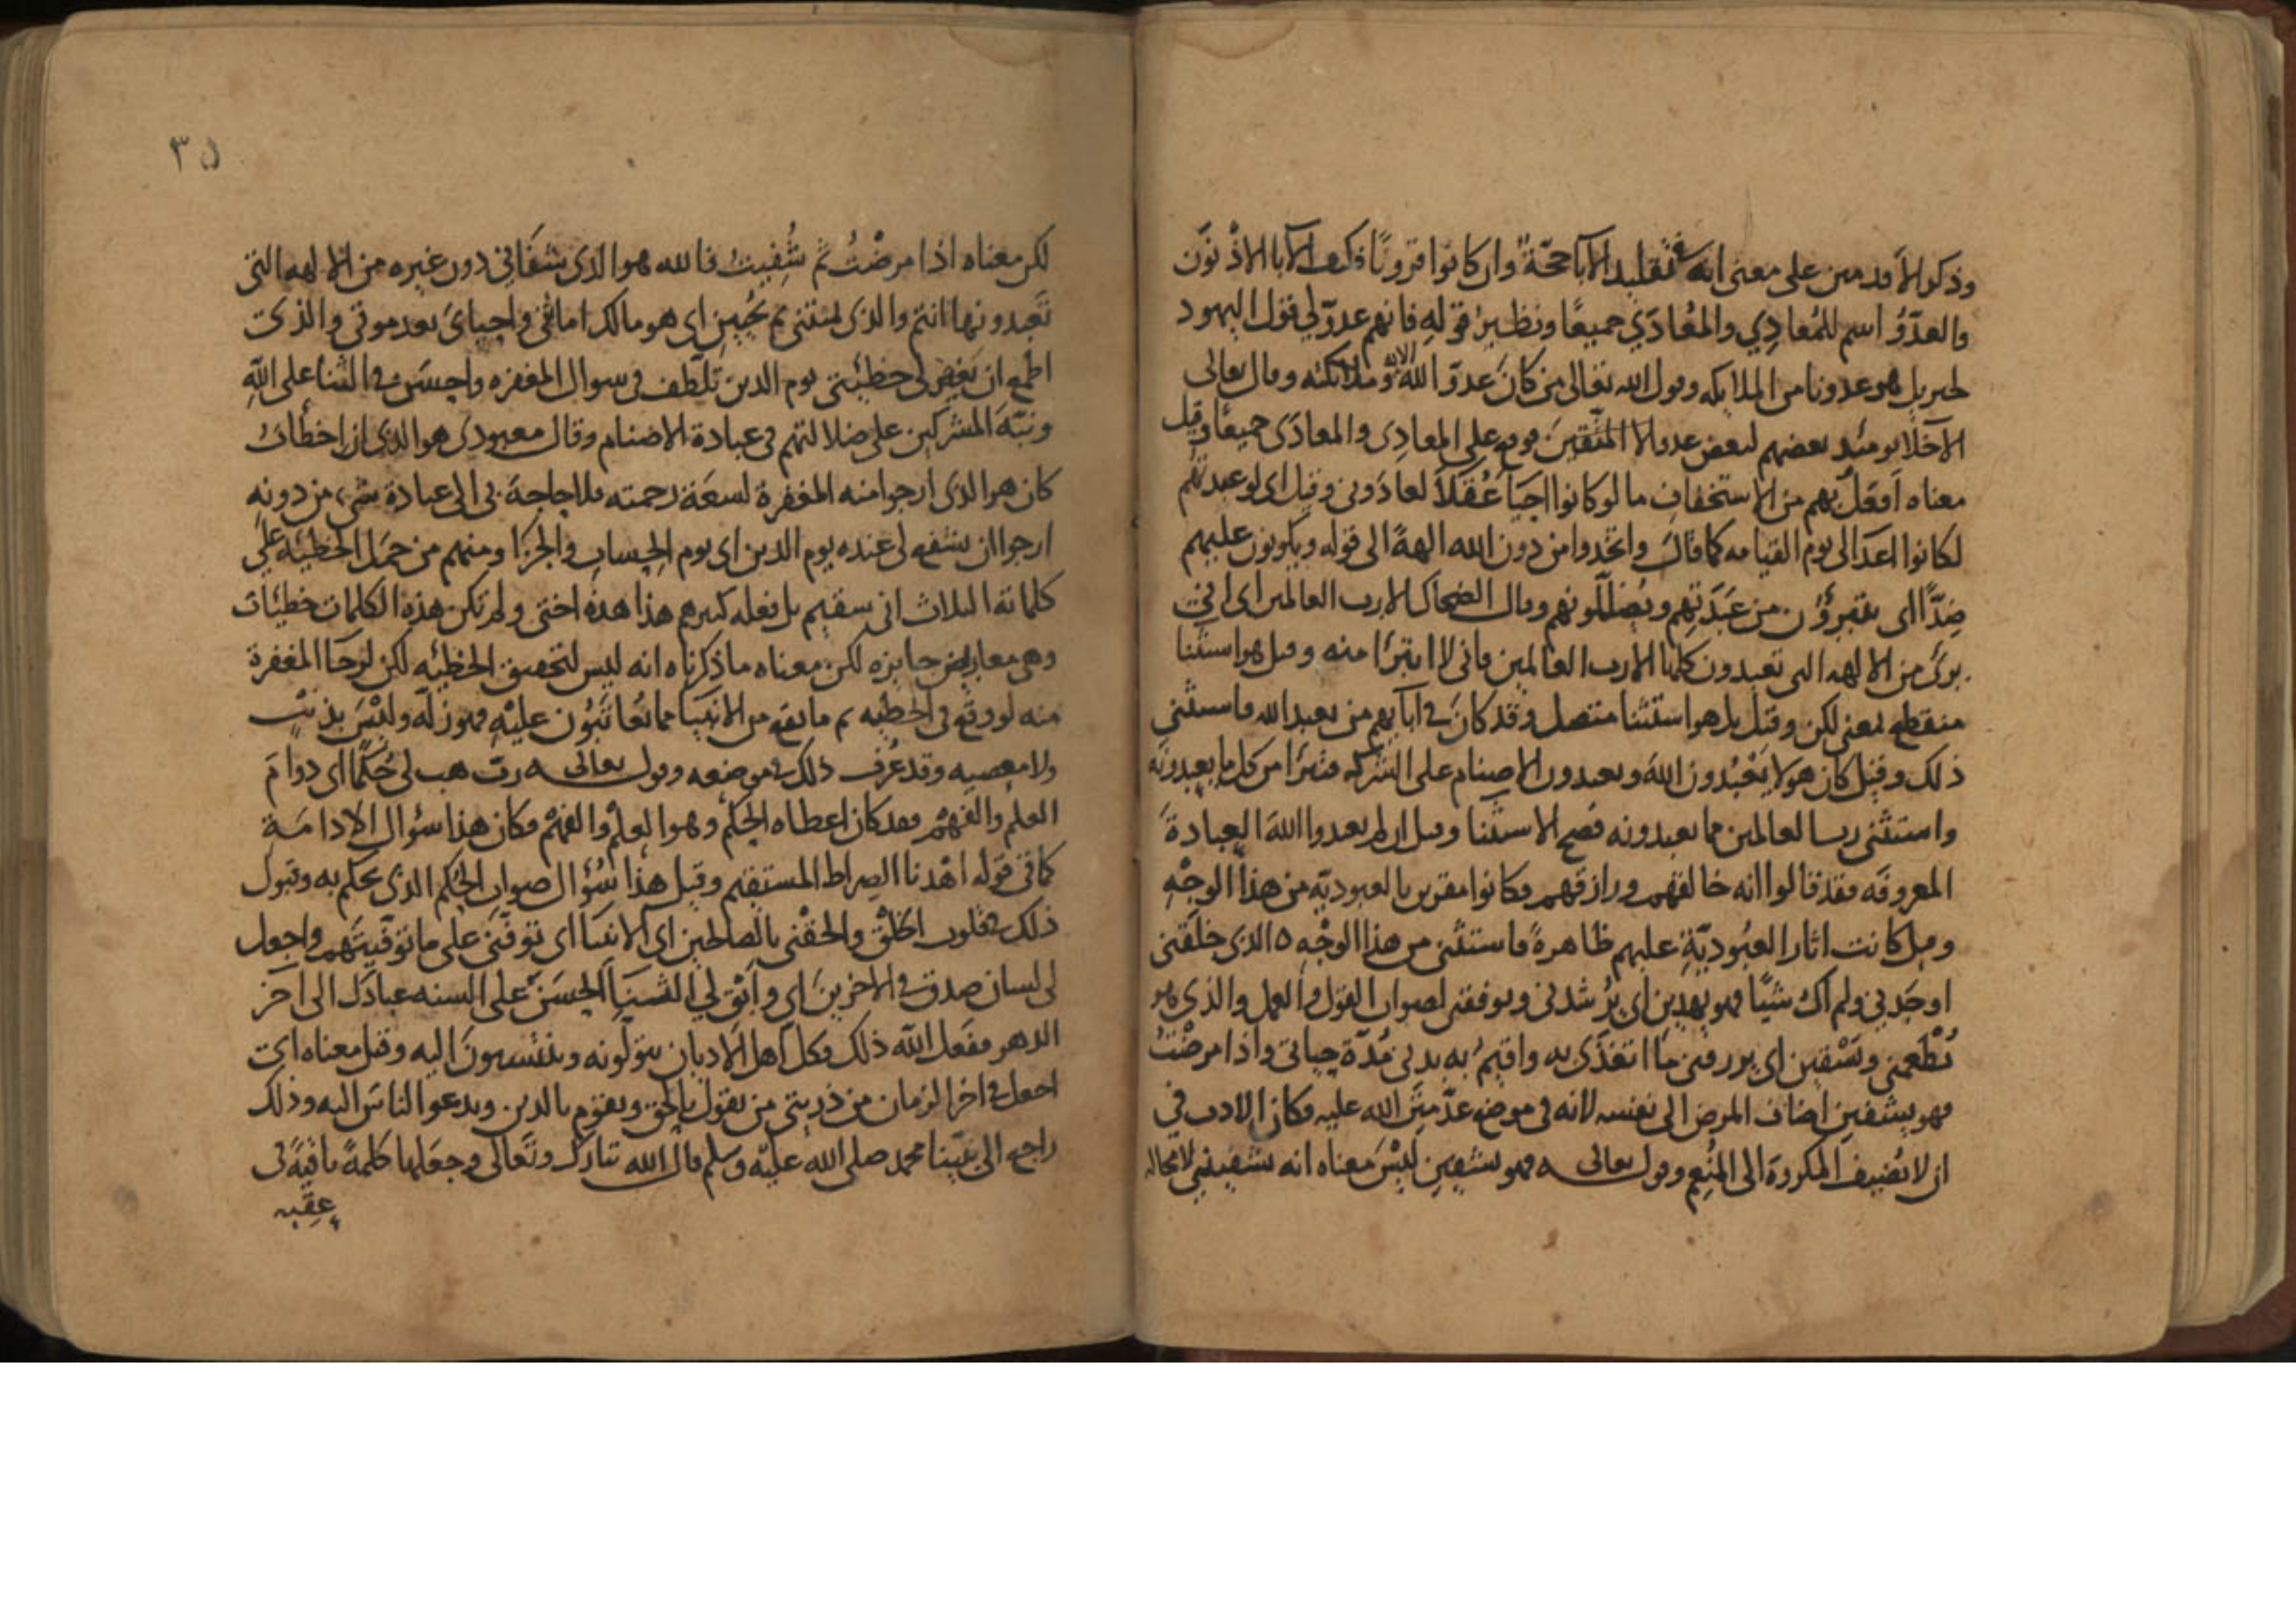 وذكر الأقدمين على معنى انه في تقليد الآبا حجّة وان كانوا قرونًا فكيف الآبا الادْنَوْن
والعدّوُ اسم للمُعادِي والمُعادَي جميعًا ونظيرُ قوله فانهم عدوّ لي قول اليهود
لجبريل هو عدونا من الملايكه وقول الله تعالى من كان عدوّا لله وملائكته وقال تعالى
الاخلا يومئد بعضهم لبعض عدو الا المتّقينَ فوقع على المعادِى والمعادَى جميعًا وقيل
معناه أفعلُ بهم من الاستخفافِ ما لو كانوا احيَآ عُقَلآ لعادَوني وقيل اى لو عبدتهم
لكانوا اعدَا لى يوم القيامه كما قال واتخدوا من دون الله الهةً الى قوله ويكونون عليهم
ضِدًّا اى يتبرؤُن من عَبَدَتِهم ويُضلّلونهم وقال الضحاك الا رب العالمين اى انى
برئ من الالهه التى تعبدون كلها الا رب العالمين فانى لا اتبرّا منه وقيل هو استثنا
منقطع بمعنى لكن وقيل بل هو استثنا متصل وقد كان في آبآيهم من يعبد الله فاستثنى
ذلك وقيل كان هولا يَعْبُدون اللهَ ويعبدون الاصنام على الشركه فتبرّا من كل ما يعبدونَه
واستثنى رب العالمين مما يعبدونه فصح الاستثنا وقيل ان لم يعبدوا اللهَ العِبادةَ
المعروفه فقد قالوا انه خالقهم ورازقهم فكانوا مقرين بالعبوديّه من هذا الوجْهِ
وقيل كانت اثار العبُوديّةِ عليهم ظاهرةً فاستثنى من هذا الوجْه ه الذى خلقنى
اوجَدني ولم اك شيًّا فهو يهدين اى يُرْشدنى ويوفقنى لصواب القول والعمل والذى هو
يُطْعمنى ويَسْقين اى يرزقنى مَا اتغذّى به واقيمُ به بدنى مُدّةَ حياتى واذا مرضْتُ
فهو يشفين اضاف المرض الى نفسه لانه فى موضع عدّ مِنَن الله عليه فكان الادب في
ان لا يُضيفَ المكروهَ الى المنْعِم وقول تعالى ه فهو يشفين ليْسَ معناه انه يشفينى لا محاله
٣٥
لكن معناه اذا مرضْتُ ثم شُفِيتُ فالله هو الذى شفَانى دون غيره من الالهه التى
تَعبدونها انتم والذى يميتنى ثم يُحيين اى هو مالك اماتتى واحياىَ بعد موتى والذى
اطمع ان يغفر لى خطيئتى يوم الدين تلَطّف فى سوال المغفره واحسَن في الثنا على اللّهِ
ونبّهَ المشركين على ضلالتهم فى عبادة الاصنام وقال معبودى هو الذى ان اخطأتُ
كان هو الذى ارجوا منه المغفرة لسعَة رحمته فلا حاجةَ بى الى عبادة شىء من دونهِ
ارجوا ان يشفع لى عنده يوم الدين اى يوم الحِساب والجزا ومنهم من حمَل الخطيئه على
كلماته الثلاث انى سقيم بل فعله كبيرهم هذا هذه اختى ولم تكن هذه الكلمات خطيئات
وهى معاريض جايزه لكن معناه ما ذكرناه انه ليس لتحقيق الخطيئه لكن لرجَا المغفرة
منه لو وقع فى الخطيّه ثم ما يقع من الانبيَا مما يُعَاتَبُون عليْهِ فهو زلّه وليْسَ بذنْبٍ
ولا معصيه وقد عُرف ذلك في موضعه وقول تعالى ه رب هب لى حُكمًا اى دوامَ
العلم والفهْم فقد كان اعطاه الحكم وهو العلم والفهْم فكان هذا سؤال الادامَةِ
كما فى قوله اهْدنا الصراط المستقيم وقيل هذا سُؤال صواب الحُكم الذى يحكم به وقبول
ذلك في قلوب الخلْق والحقْنى بالصالحين اى الانبيَا اى توفّنى على ما توفّيتَهم واجعل
لى لسان صدق في الاخرينَ اى وابْق لى الثنَاَ الحسَنَ على السنه عبادك الى اخر
الدهر ففعل الله ذلك فكل اهل الاديان يتولّونه وينتسبونَ اليه وقيل معناه اى
اجعل في اخر الزمان من ذريتى من يقول بالحق ويقوم بالدين ويدعوا الناسَ اليه وذلك
راجع الى نبيّنا محمد صلى الله عليه وسلم قال الله تبارك وتَعالى وجعَلها كلمةً باقيةً فى
عقبه